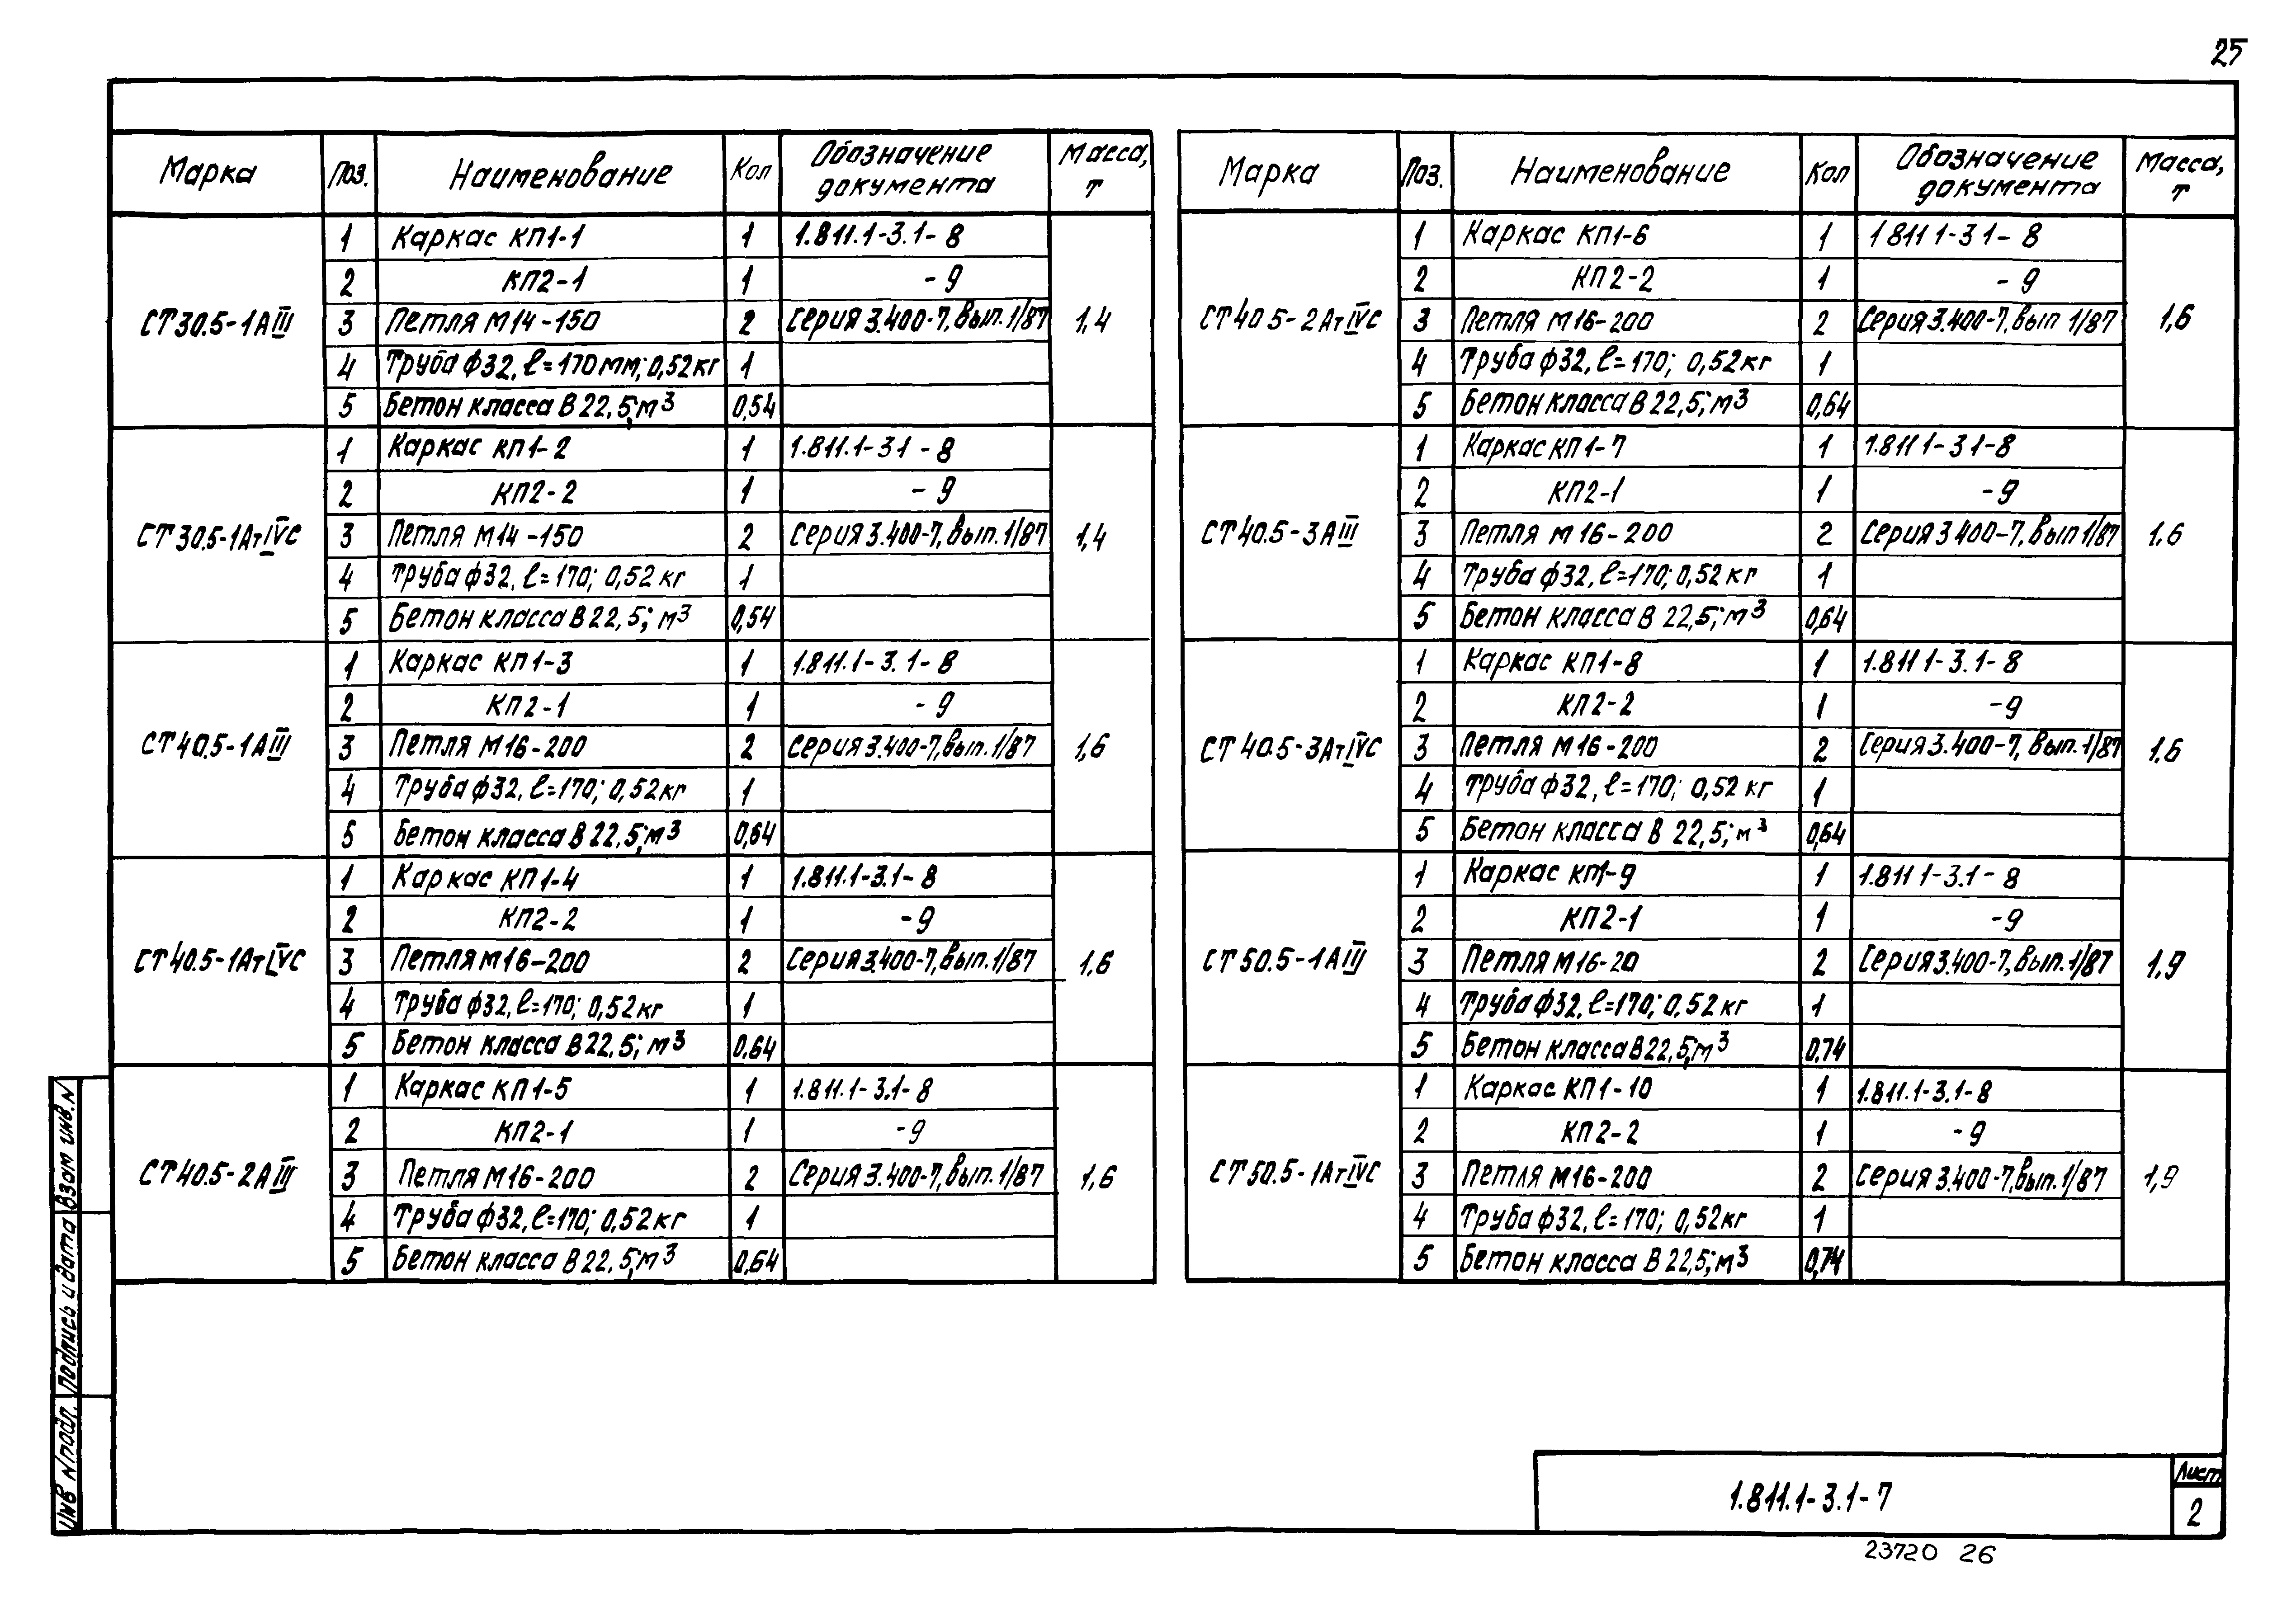 25
Марка Поз. Наименование Кол Обозначение документа Масса, т
СТ30.5-1АIII 1,4
1 Каркас КП1-1 1 1.811.1-3.1-8
2 КП2-1 1 -9
3 Петля М14-150 2 Серия 3.400-7, вып. 1/87
4 Труба ф32, ℓ=170мм; 0,52кг 1
5 Бетон класса В22,5; м³ 0,54
СТ30.5-1АтIVС 1,4
1 Каркас КП1-2 1 1.811.1-31-8
2 КП2-2 1 -9
3 Петля М14-150 2 Серия 3.400-7, вып. 1/87
4 Труба ф32, ℓ=170; 0,52 кг 1
5 Бетон класса В22,5; м³ 0,54
СТ40.5-1АIII 1,6
1 Каркас КП1-3 1 1.811.1-3.1-8
2 КП2-1 1 -9
3 Петля М16-200 2 Серия 3.400-7, вып. 1/87
4 Труба ф32, ℓ=170; 0,52кг 1
5 Бетон класса В22,5; м³ 0,64
СТ40.5-1АтIVС 1,6
1 Каркас КП1-4 1 1.811.1-3.1-8
2 КП2-2 1 -9
3 Петля М16-200 2 Серия 3.400-7, вып. 1/87
4 Труба ф32, ℓ=170; 0,52кг 1
5 Бетон класса В22,5; м³ 0,64
СТ40.5-2АIII 1,6
1 Каркас КП1-5 1 1.811.1-3.1-8
2 КП2-1 1 -9
3 Петля М16-200 2 Серия 3.400-7, вып. 1/87
4 Труба ф32, ℓ=170; 0,52кг 1
5 Бетон класса В22,5; м³ 0,64
Марка Поз. Наименование Кол Обозначение документа Масса, т
СТ40 5-2АтIVС 1,6
1 Каркас КП1-6 1 1 811 1-3 1-8
2 КП2-2 1 -9
3 Петля М16-200 2 Серия 3.400-7, вып 1/87
4 Труба ф32, ℓ=170; 0,52кг 1
5 Бетон класса В22,5; м³ 0,64
СТ40.5-3АIII 1,6
1 Каркас КП1-7 1 1.811 1-3 1-8
2 КП2-1 1 -9
3 Петля М16-200 2 Серия 3 400-7, вып 1/87
4 Труба ф32, ℓ=170; 0,52 кг 1
5 Бетон класса В 22,5; м³ 0,64
СТ 40.5-3АтIVС 1,6
1 Каркас КП1-8 1 1.811 1-3.1-8
2 КП2-2 1 -9
3 Петля М16-200 2 Серия 3.400-7, вып. 1/87
4 Труба ф32, ℓ=170; 0,52 кг 1
5 Бетон класса В 22,5; м³ 0,64
СТ50.5-1АIII 1,9
1 Каркас КП1-9 1 1.811 1-3.1-8
2 КП2-1 1 -9
3 Петля М16-20 2 Серия 3.400-7, вып. 1/87
4 Труба ф32, ℓ=170; 0,52 кг 1
5 Бетон класса В22,5; м³ 0,74
СТ50.5-1АтIVС 1,9
1 Каркас КП1-10 1 1.811.1-3.1-8
2 КП2-2 1 -9
3 Петля М16-200 2 Серия 3.400-7, вып. 1/87
4 Труба ф32, ℓ=170; 0,52кг 1
5 Бетон класса В22,5; м³ 0,74
Инв N подл. Подпись и дата Взам инв. N
1.811.1-3.1-7
Лист
2
23720 26